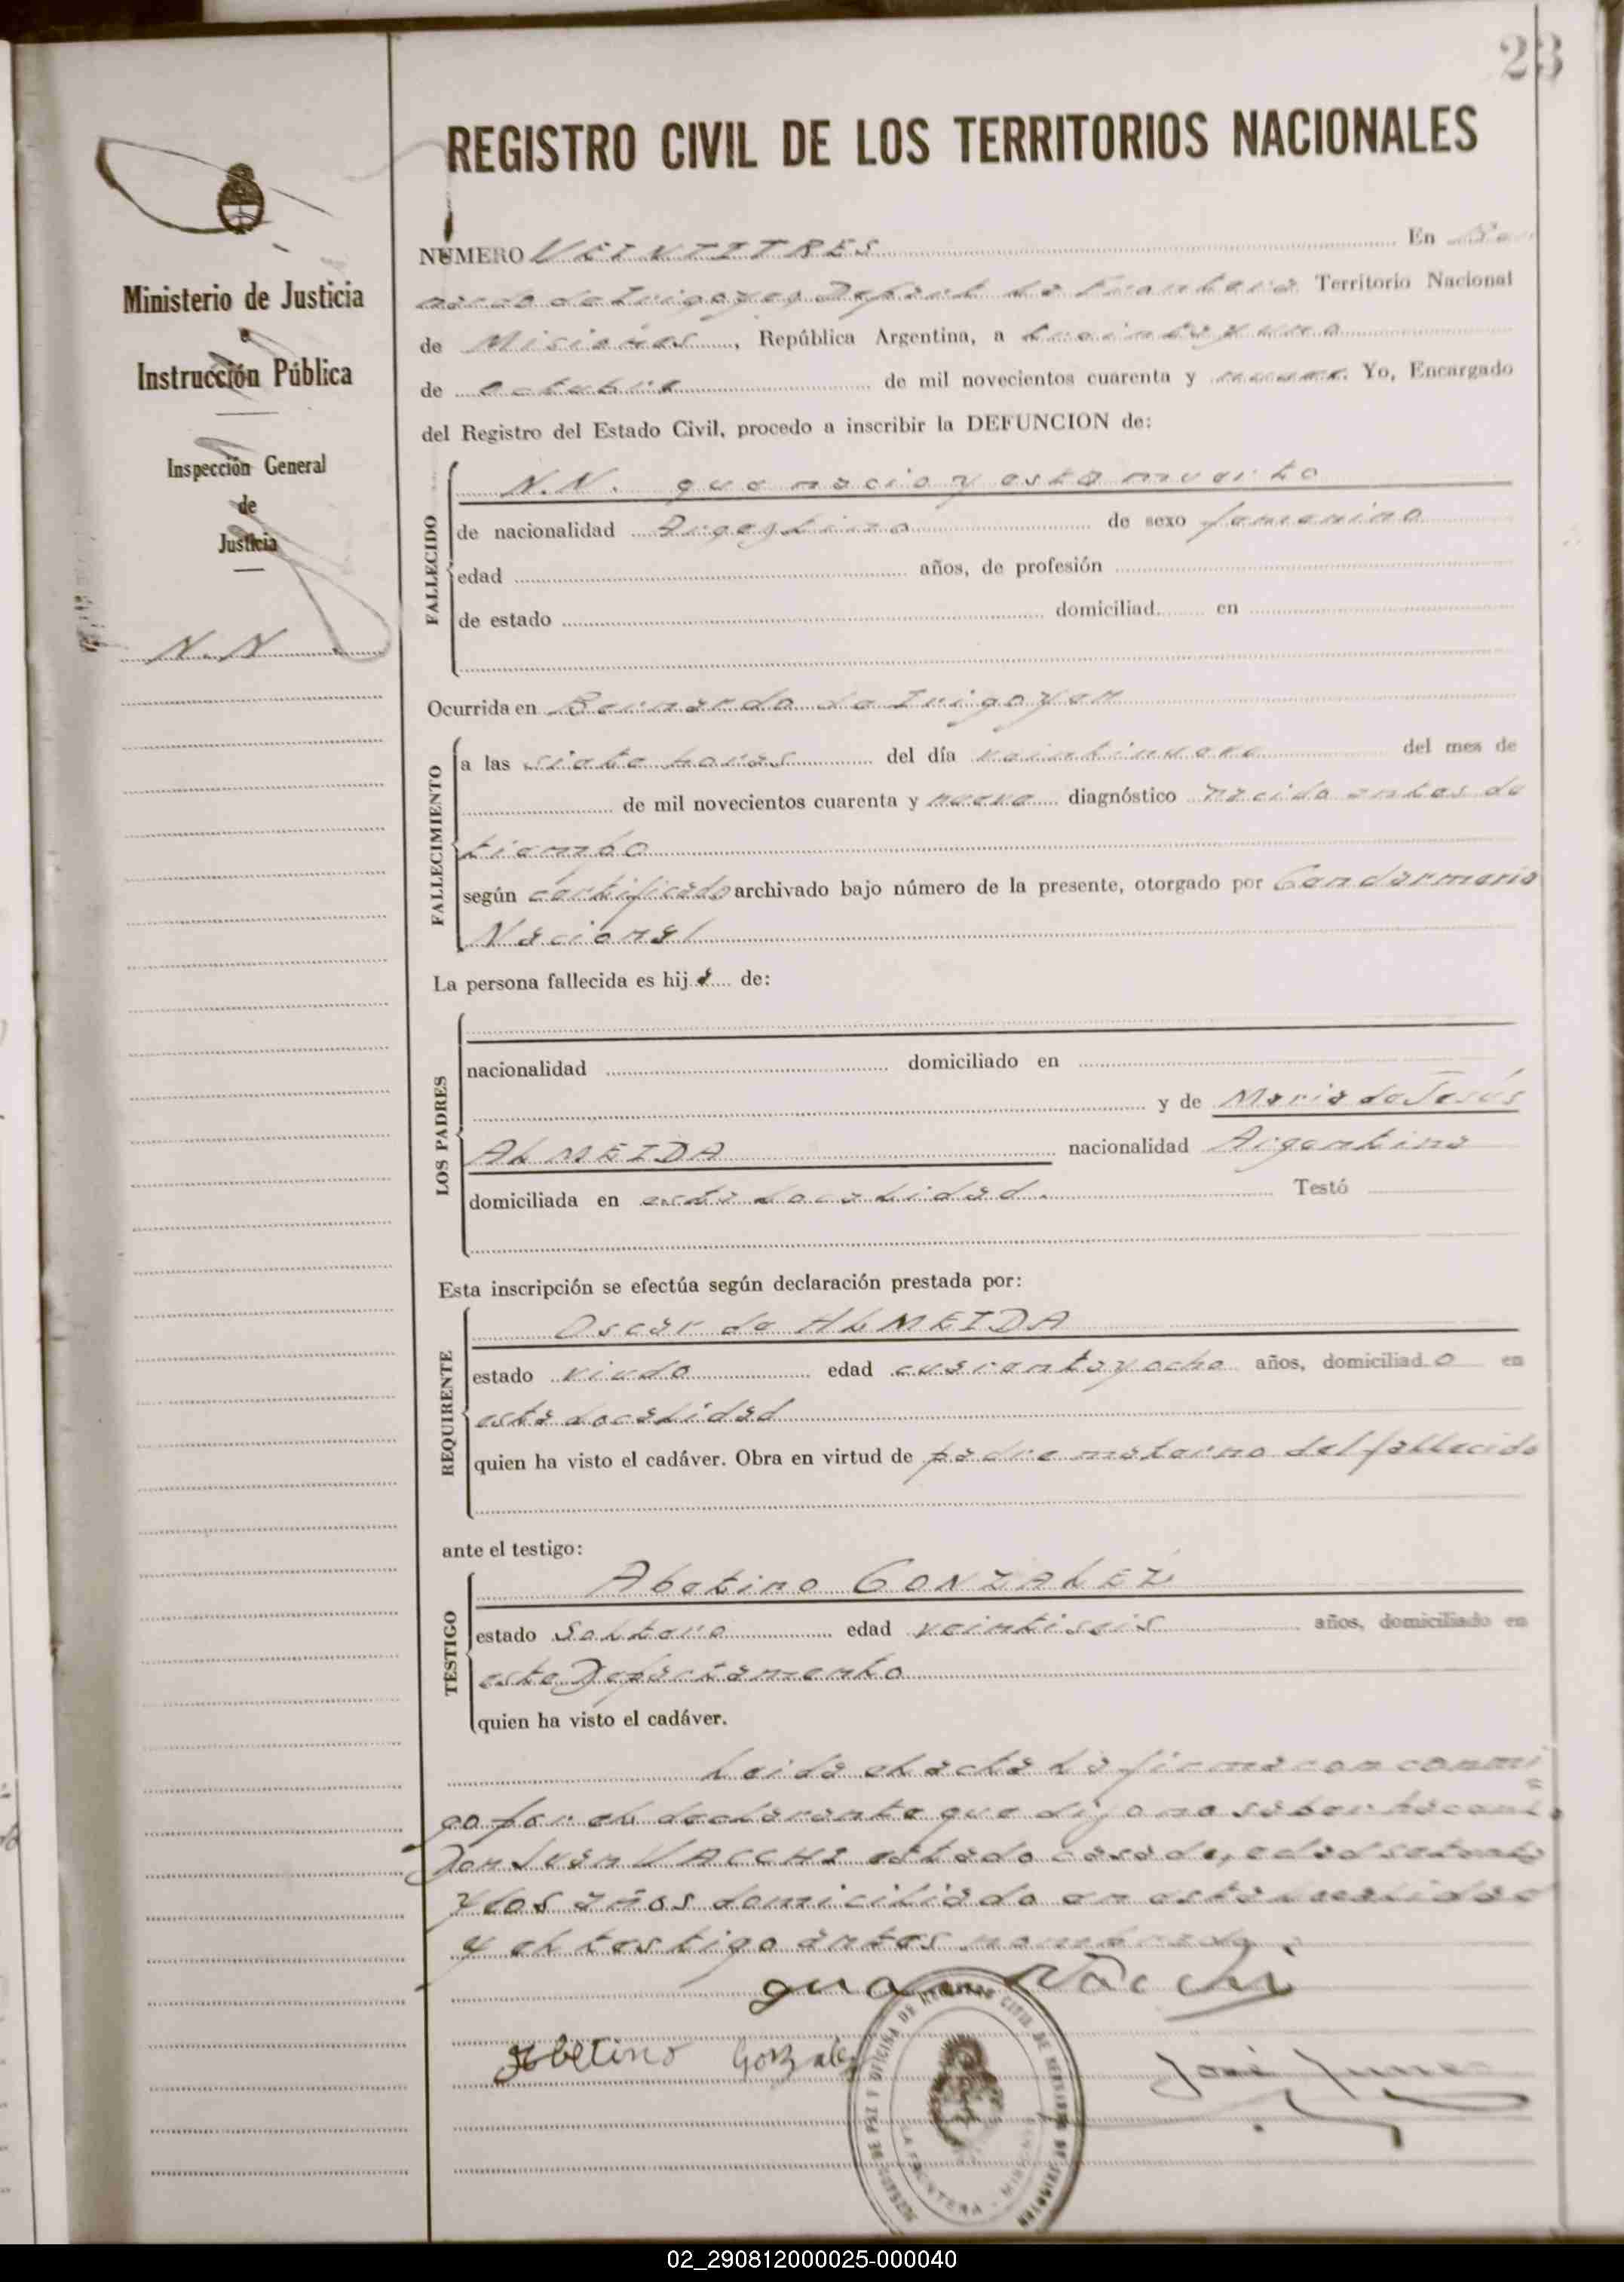 23
REGISTRO CIVIL DE LOS TERRITORIOS NACIONALES
Ministerio de Justicia
e
Instrucción Pública
Inspección General
de
Justicia
N.N
NUMERO VEINTITRES En Ber
nardo de Irigoyen, Depart. de Frontera Territorio Nacional
de Misiones, República Argentina, a treinta y uno
de octubre de mil novecientos cuarenta y nueve. Yo, Encargado
del Registro del Estado Civil, procedo a inscribir la DEFUNCION de:
FALLECIDO
N.N. que nacio y esta muerto
de nacionalidad Argentino de sexo femenino
edad años, de profesión
de estado domiciliad en
Ocurrida en Bernardo de Irigoyen
FALLECIMIENTO
a las siete horas del día veintinueve del mes de
de mil novecientos cuarenta y nueve diagnóstico nacido antes de
tiempo
según certificado archivado bajo número de la presente, otorgado por Gendarmeria
Nacional
La persona fallecida es hij de:
LOS PADRES
nacionalidad domiciliado en
y de Maria de Jesús
ALMEIDA nacionalidad Argentina
domiciliada en esta localidad. Testó
Esta inscripción se efectúa según declaración prestada por:
REQUIRENTE
Oscar de ALMEIDA
estado viudo edad cuarenta y ocho años, domiciliado en
esta localidad
quien ha visto el cadáver. Obra en virtud de padre materno del fallecido
ante el testigo:
TESTIGO
Abetino GONZALEZ
estado Soltero edad veintiseis años, domiciliado en
este Departamento
quien ha visto el cadáver.
Leida el acta la firmaron conmi
go por el declarante que dijo no saber hacerlo
Don Juan VACCHI estado casado, edad setenta
y dos años domiciliado en esta localidad
y el testigo antes nombrado.
Juan Vacchi
Abetino Gonzalez
José
JUZGADO DE PAZ Y OFICINA DE REGISTRO CIVIL DE BERNARDO DE IRIGOYEN
LA FRONTERA - MISIONES
02_290812000025-000040